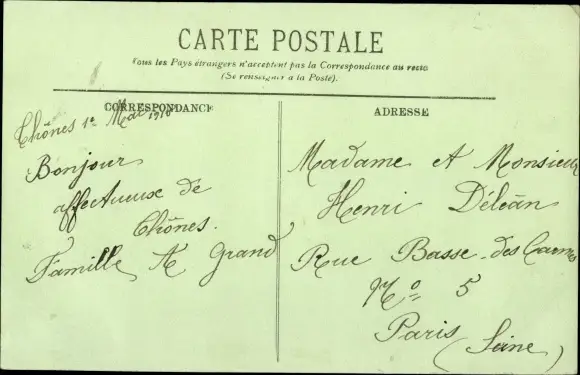 CARTE POSTALE
Tous les Pays étrangers n'acceptent pas la Correspondance au recto
(Se renseigner à la Poste).
CORRESPONDANCE
ADRESSE
Thônes 1e Mai 1910
Bonjour
affectueuse de
Thônes.
Famille A Grand
Madame et Monsieur
Henri Déléan
Rue Basse-des Carmes
No 5
Paris
(Seine)